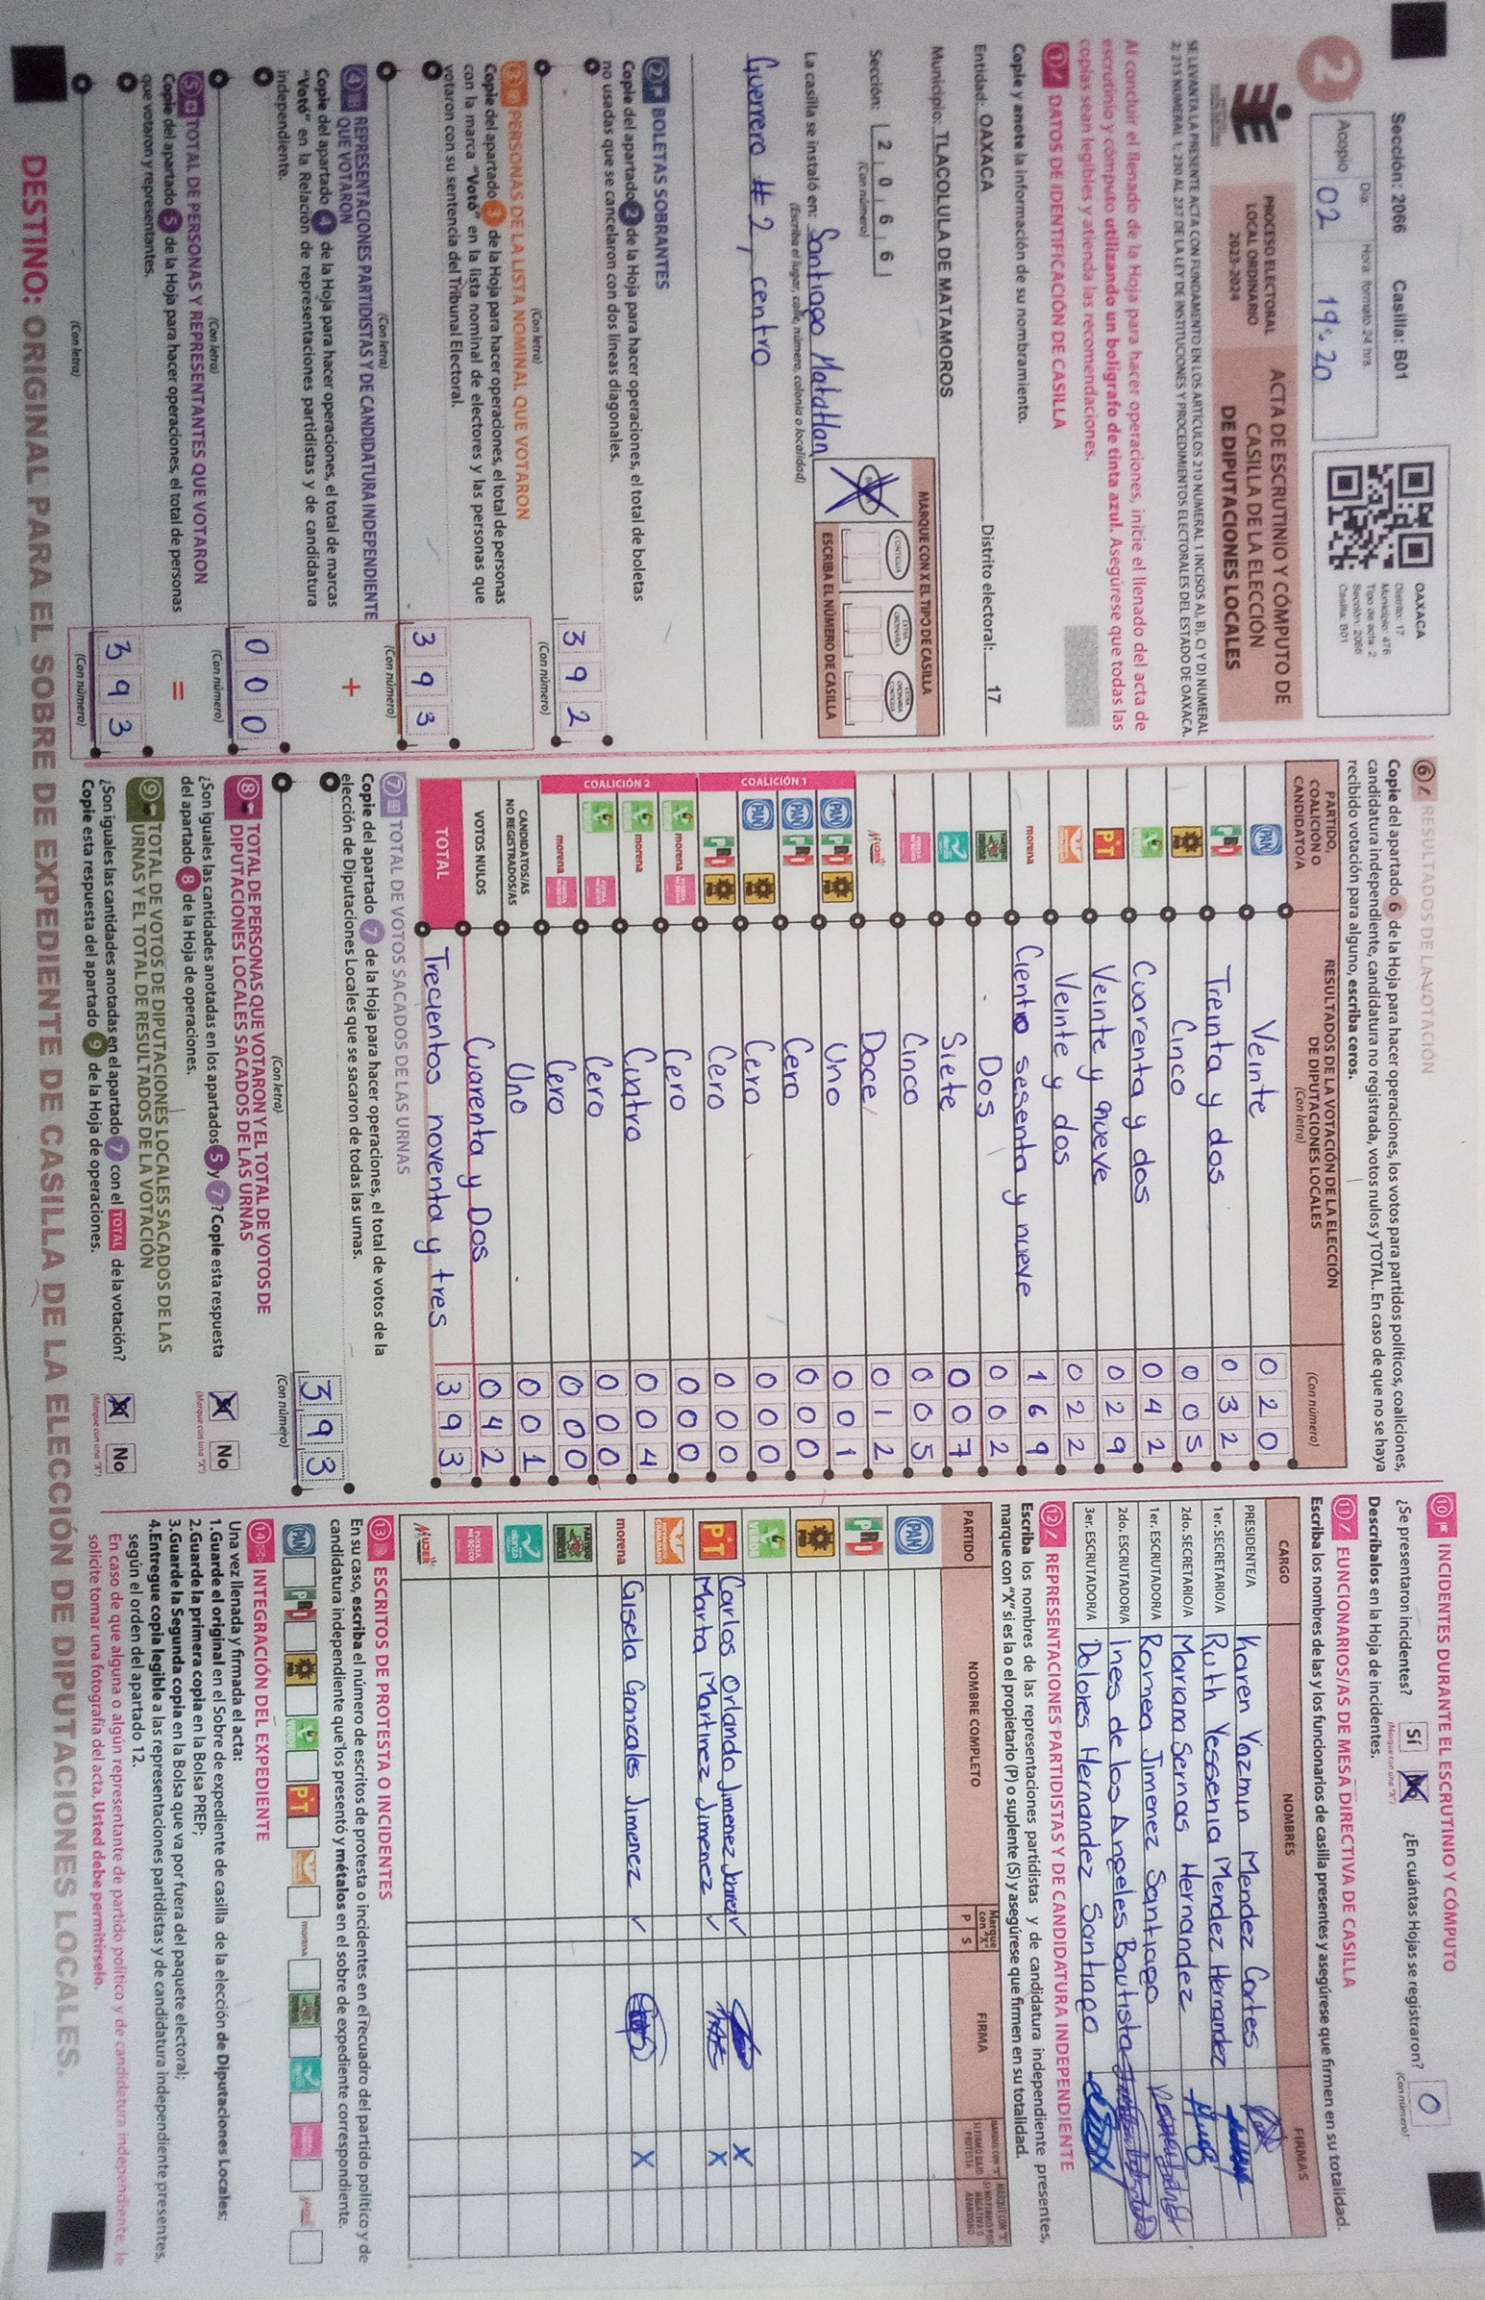 Sección: 2066 Casilla: B01
2
Acopio
Día: Hora: formato 24 hrs
02 19:20
OAXACA
Distrito: 17
Municipio: 476
Tipo de acta: 2
Sección: 2066
Casilla: B01
PROCESO ELECTORAL
LOCAL ORDINARIO
2023-2024
ACTA DE ESCRUTINIO Y CÓMPUTO DE
CASILLA DE LA ELECCIÓN
DE DIPUTACIONES LOCALES
SE LEVANTA LA PRESENTE ACTA CON FUNDAMENTO EN LOS ARTÍCULOS 210 NUMERAL 1 INCISOS A), B), C) Y D) NUMERAL
2; 215 NUMERAL 1; 230 AL 237 DE LA LEY DE INSTITUCIONES Y PROCEDIMIENTOS ELECTORALES DEL ESTADO DE OAXACA.
Al concluir el llenado de la Hoja para hacer operaciones, inicie el llenado del acta de
escrutinio y cómputo utilizando un bolígrafo de tinta azul. Asegúrese que todas las
copias sean legibles y atienda las recomendaciones.
1 DATOS DE IDENTIFICACIÓN DE CASILLA
Copie y anote la información de su nombramiento.
Entidad: OAXACA Distrito electoral: 17
Municipio: TLACOLULA DE MATAMOROS
Sección: 2 0 6 6
(Con número)
MARQUE CON X EL TIPO DE CASILLA
CONTIGUA
ESCRIBA EL NÚMERO DE CASILLA
La casilla se instaló en: Santiago Matatlan
(Escriba el lugar, calle, número, colonia o localidad)
Guerrero # 2, centro
2 BOLETAS SOBRANTES
Copie del apartado 2 de la Hoja para hacer operaciones, el total de boletas
no usadas que se cancelaron con dos líneas diagonales.
3 9 2
(Con letra) (Con número)
3 PERSONAS DE LA LISTA NOMINAL QUE VOTARON
Copie del apartado 3 de la Hoja para hacer operaciones, el total de personas
con la marca "Votó" en la lista nominal de electores y las personas que
votaron con su sentencia del Tribunal Electoral.
3 9 3
(Con letra) (Con número)
4 REPRESENTACIONES PARTIDISTAS Y DE CANDIDATURA INDEPENDIENTE
QUE VOTARON
+
Copie del apartado 4 de la Hoja para hacer operaciones, el total de marcas
"Votó" en la Relación de representaciones partidistas y de candidatura
independiente.
0 0 0
(Con letra) (Con número)
5 TOTAL DE PERSONAS Y REPRESENTANTES QUE VOTARON
=
Copie del apartado 5 de la Hoja para hacer operaciones, el total de personas
que votaron y representantes.
3 9 3
(Con letra) (Con número)
6 RESULTADOS DE LA VOTACIÓN
Copie del apartado 6 de la Hoja para hacer operaciones, los votos para partidos políticos, coaliciones,
candidatura independiente, candidatura no registrada, votos nulos y TOTAL. En caso de que no se haya
recibido votación para alguno, escriba ceros.
PARTIDO,
COALICIÓN O
CANDIDATO/A
RESULTADOS DE LA VOTACIÓN DE LA ELECCIÓN
DE DIPUTACIONES LOCALES
(Con letra) (Con número)
PAN Veinte 0 2 0
PRI Treinta y dos 0 3 2
PRD Cinco 0 0 5
VERDE Cuarenta y dos 0 4 2
PT Veinte y nueve 0 2 9
Veinte y dos 0 2 2
morena Ciento sesenta y nueve 1 6 9
Dos 0 0 2
Siete 0 0 7
Cinco 0 0 5
MUJER Doce 0 1 2
COALICIÓN 1
PAN PRI PRD Uno 0 0 1
PAN PRI Cero 0 0 0
PAN PRD Cero 0 0 0
PRI PRD Cero 0 0 0
COALICIÓN 2
morena Cero 0 0 0
morena Cuatro 0 0 4
Cero 0 0 0
morena Cero 0 0 0
CANDIDATOS/AS
NO REGISTRADOS/AS Uno 0 0 1
VOTOS NULOS Cuarenta y Dos 0 4 2
TOTAL Trecientos noventa y tres 3 9 3
7 TOTAL DE VOTOS SACADOS DE LAS URNAS
Copie del apartado 7 de la Hoja para hacer operaciones, el total de votos de la
elección de Diputaciones Locales que se sacaron de todas las urnas.
3 9 3
(Con letra) (Con número)
8 TOTAL DE PERSONAS QUE VOTARON Y EL TOTAL DE VOTOS DE
DIPUTACIONES LOCALES SACADOS DE LAS URNAS
¿Son iguales las cantidades anotadas en los apartados 5 y 7? Copie esta respuesta
del apartado 8 de la Hoja de operaciones.
Sí No
(Marque con una "X")
9 TOTAL DE VOTOS DE DIPUTACIONES LOCALES SACADOS DE LAS
URNAS Y EL TOTAL DE RESULTADOS DE LA VOTACIÓN
¿Son iguales las cantidades anotadas en el apartado 7 con el TOTAL de la votación?
Copie esta respuesta del apartado 9 de la Hoja de operaciones.
Sí No
(Marque con una "X")
10 INCIDENTES DURANTE EL ESCRUTINIO Y CÓMPUTO
¿Se presentaron incidentes? Sí No ¿En cuántas Hojas se registraron? 0
(Marque con una "X") (Con número)
Descríbalos en la Hoja de incidentes.
11 FUNCIONARIOS/AS DE MESA DIRECTIVA DE CASILLA
Escriba los nombres de las y los funcionarios de casilla presentes y asegúrese que firmen en su totalidad.
CARGO NOMBRES FIRMAS
PRESIDENTE/A Karen Yazmin Mendez Cortes
1er. SECRETARIO/A Ruth Yessenia Mendez Hernandez
2do. SECRETARIO/A Mariana Sernas Hernandez
1er. ESCRUTADOR/A Romea Jimenez Santiago
2do. ESCRUTADOR/A Ines de los Angeles Bautista
3er. ESCRUTADOR/A Dolores Hernandez Santiago
12 REPRESENTACIONES PARTIDISTAS Y DE CANDIDATURA INDEPENDIENTE
Escriba los nombres de las representaciones partidistas y de candidatura independiente presentes,
marque con "X" si es la o el propietario (P) o suplente (S) y asegúrese que firmen en su totalidad.
PARTIDO NOMBRE COMPLETO Marque con "X" P S FIRMA
PAN
PRI
PRD
VERDE
PT Carlos Orlando Jimenez X
Marta Martinez Jimenez X
morena Gisela Goncales Jimenez X
MUJER
13 ESCRITOS DE PROTESTA O INCIDENTES
En su caso, escriba el número de escritos de protesta o incidentes en el recuadro del partido político y de
candidatura independiente que los presentó y métalos en el sobre de expediente correspondiente.
PAN PRI PRD VERDE PT morena
14 INTEGRACIÓN DEL EXPEDIENTE
Una vez llenada y firmada el acta:
1.Guarde el original en el Sobre de expediente de casilla de la elección de Diputaciones Locales;
2.Guarde la primera copia en la Bolsa PREP;
3.Guarde la Segunda copia en la Bolsa que va por fuera del paquete electoral;
4.Entregue copia legible a las representaciones partidistas y de candidatura independiente presentes,
según el orden del apartado 12.
En caso de que alguna o algún representante de partido político y de candidatura independiente, le
solicite tomar una fotografía del acta, Usted debe permitírselo.
DESTINO: ORIGINAL PARA EL SOBRE DE EXPEDIENTE DE CASILLA DE LA ELECCIÓN DE DIPUTACIONES LOCALES.